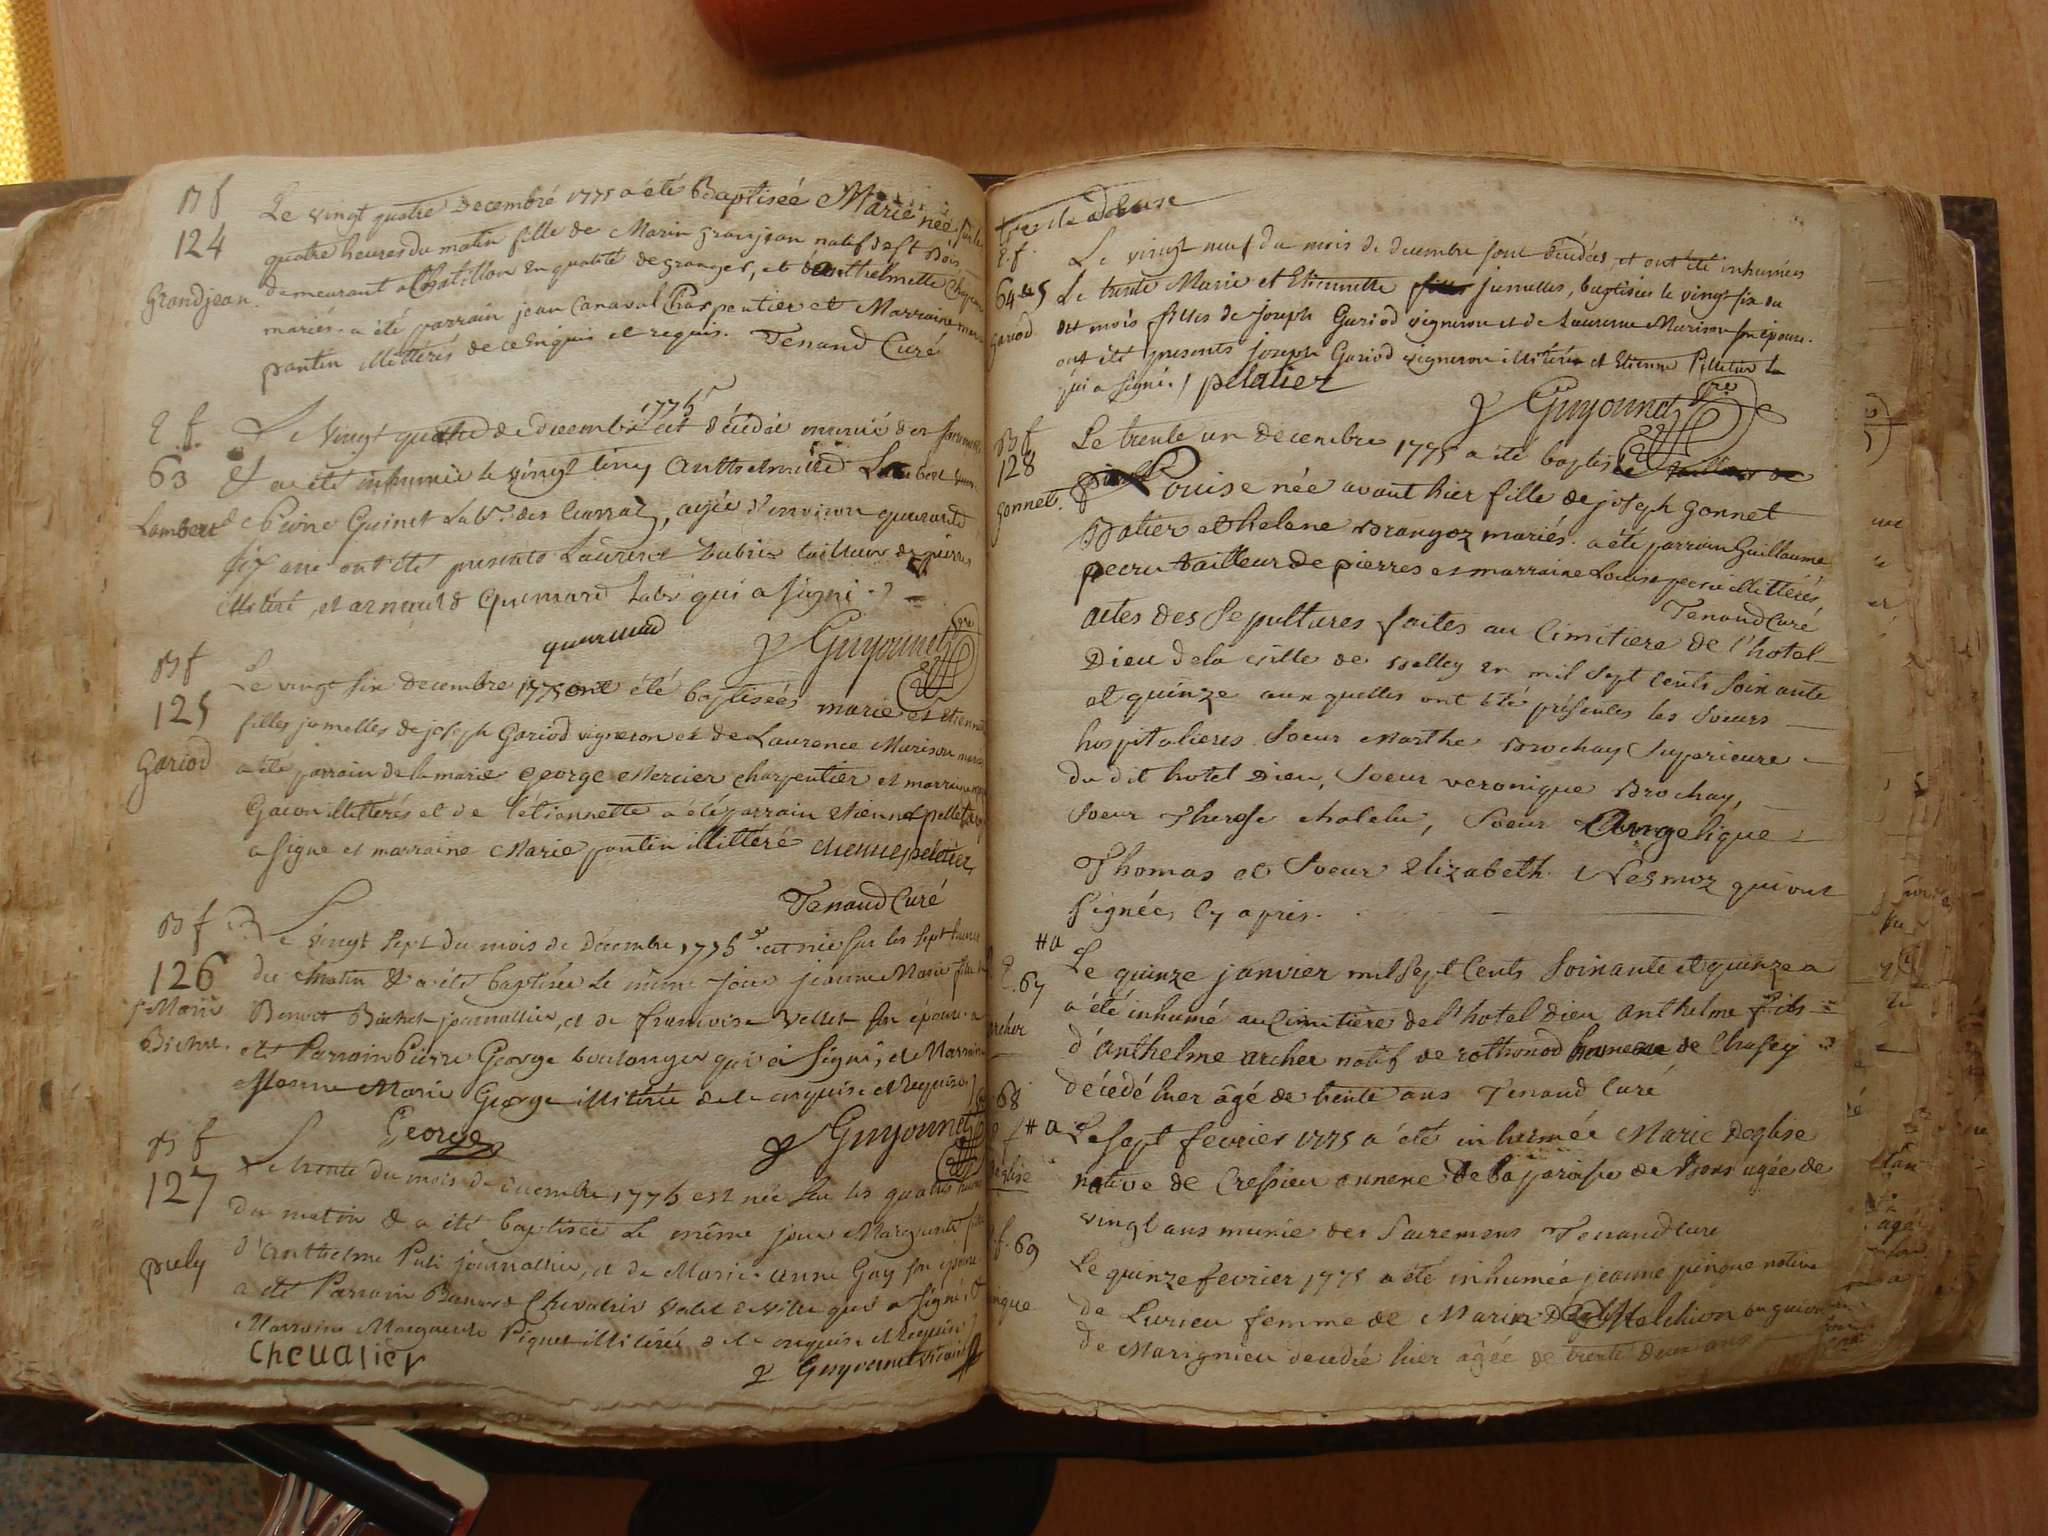 B f
124
Grandjean
Le vingt quatre Decembre 1775 a été Baptisée Marie née sur les
quatre heures du matin fille de Marin granjean natif de st Bois
demeurant a Chatillon en qualité de granger, et d'anthelmette
mariés. a été parrain jean Canaval Charpentier et Marraine
pantin illitérés de ce enquis et requis. Tenand Curé
E. f.
63
Lambert
Le vingt quatre de decembre 1775 est décédée munie des sacremens
Et a été inhumée le vingt cinq Anthelmette Lambert
de Pierre Guinet Labr. des Ecassaz, agée d'environ quarante
six ans ont été presents Laurent Dubois tailleur de pierres
illitéré, et arnould Quemard Labr qui a signé
quemard
Guyonnet
B f
125
Gariod
Le vingt six decembre 1775 ont été baptisées marie et etiennette
filles jumelles de joseph Gariod vigneron et de Laurence Murison mariés
a été parrain de la marie George Mercier charpentier et marraine
Gacon illittérés et de l'etiennette a été parrain etienne pelletier
a signé et marraine Marie pantin illittéré etienne peletier
Tenand Curé
B f
126
j Marie
Bichet
Le vingt sept du mois de Décembre 1775 est née sur les sept heures
du matin & a été baptisée le même jour jeanne Marie fille de
Benoit Bichet journallier, et de francoise Vellet son épouse a
été Parrain Pierre George boulanger qui a signé, et Marraine
Jeanne Marie George illitérée de ce enquise et requise
George
Guyonnet
B f
127
puly
Le trente du mois de decembre 1775 est née sur les quatre heures
du matin & a été baptisée le même jour Marguerite fille
d'Anthelme Puli journallier, et de Marie anne Guy son epouse
a été Parrain Bernard Chevalier valet de ville qui a signé, &
Marraine Marguerite Piquet illitérée de ce enquise et requise
Chevalier
Guyonnet vicaire
E. f.
64 & 65
Gariod
Le vingt neuf du mois de decembre sont décédées, et ont été inhumées
Le trente Marie et Etiennette jumelles, baptisées le vingt six du
dit mois filles de joseph Gariod vigneron et de Laurence Murison son épouse.
ont été presents joseph Gariod vigneron illitéré et Etienne Pilletier
qui a signé. / pelatier
Guyonnet
B f
128
gonnet.
Le trente un decembre 1775 a été baptisée
Louise née avant hier fille de joseph gonnet
Batier et helene Brangoz mariés. a été parrain Guillaume
pecru tailleur de pierres et marraine Louise pecru illittérés
Tenand Curé
actes des Sepultures faites au Cimitiere de l'hotel
Dieu de la ville de Belley en mil sept cents soixante
et quinze aux quelles ont été présentes les Soeurs
hospitalieres Soeur Marthe Brochay Superieure
du dit hotel Dieu, Soeur veronique Brochay,
Soeur Therese chalelu, Soeur Angelique
Thomas et Soeur Elizabeth Nesmoz qui ont
signées cy apres.
67
archer
Le quinze janvier mil sept Cents Soixante et quinze a
a été inhumé au Cimitiere de l'hotel dieu Anthelme fils
d'Anthelme archer natif de rothonod de Chasey
décédé hier âgé de trente ans Tenand Curé
68
deglise
Le sept fevrier 1775 a été inhumée Marie Deglise
native de Cressieu annexe de la paroisse de Bons agée de
vingt ans munie des Sacremens Tenand Curé
69
pingue
Le quinze fevrier 1775 a été inhumée jeanne pingue native
de Lurieu femme de Marin
de Marignieu decedée hier âgée de trente deux ans